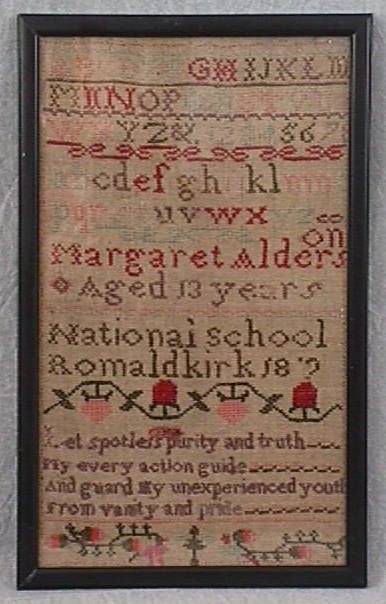 GHIJKLM
MNOP
YZ& 567
cdefgh kl
pqr uvwx
on
Margaret Alders
Aged 13 years
National School
Romaldkirk 18
Let spotless purity and truth
My every action guide
And guard My unexperienced youth
From vanity and pride